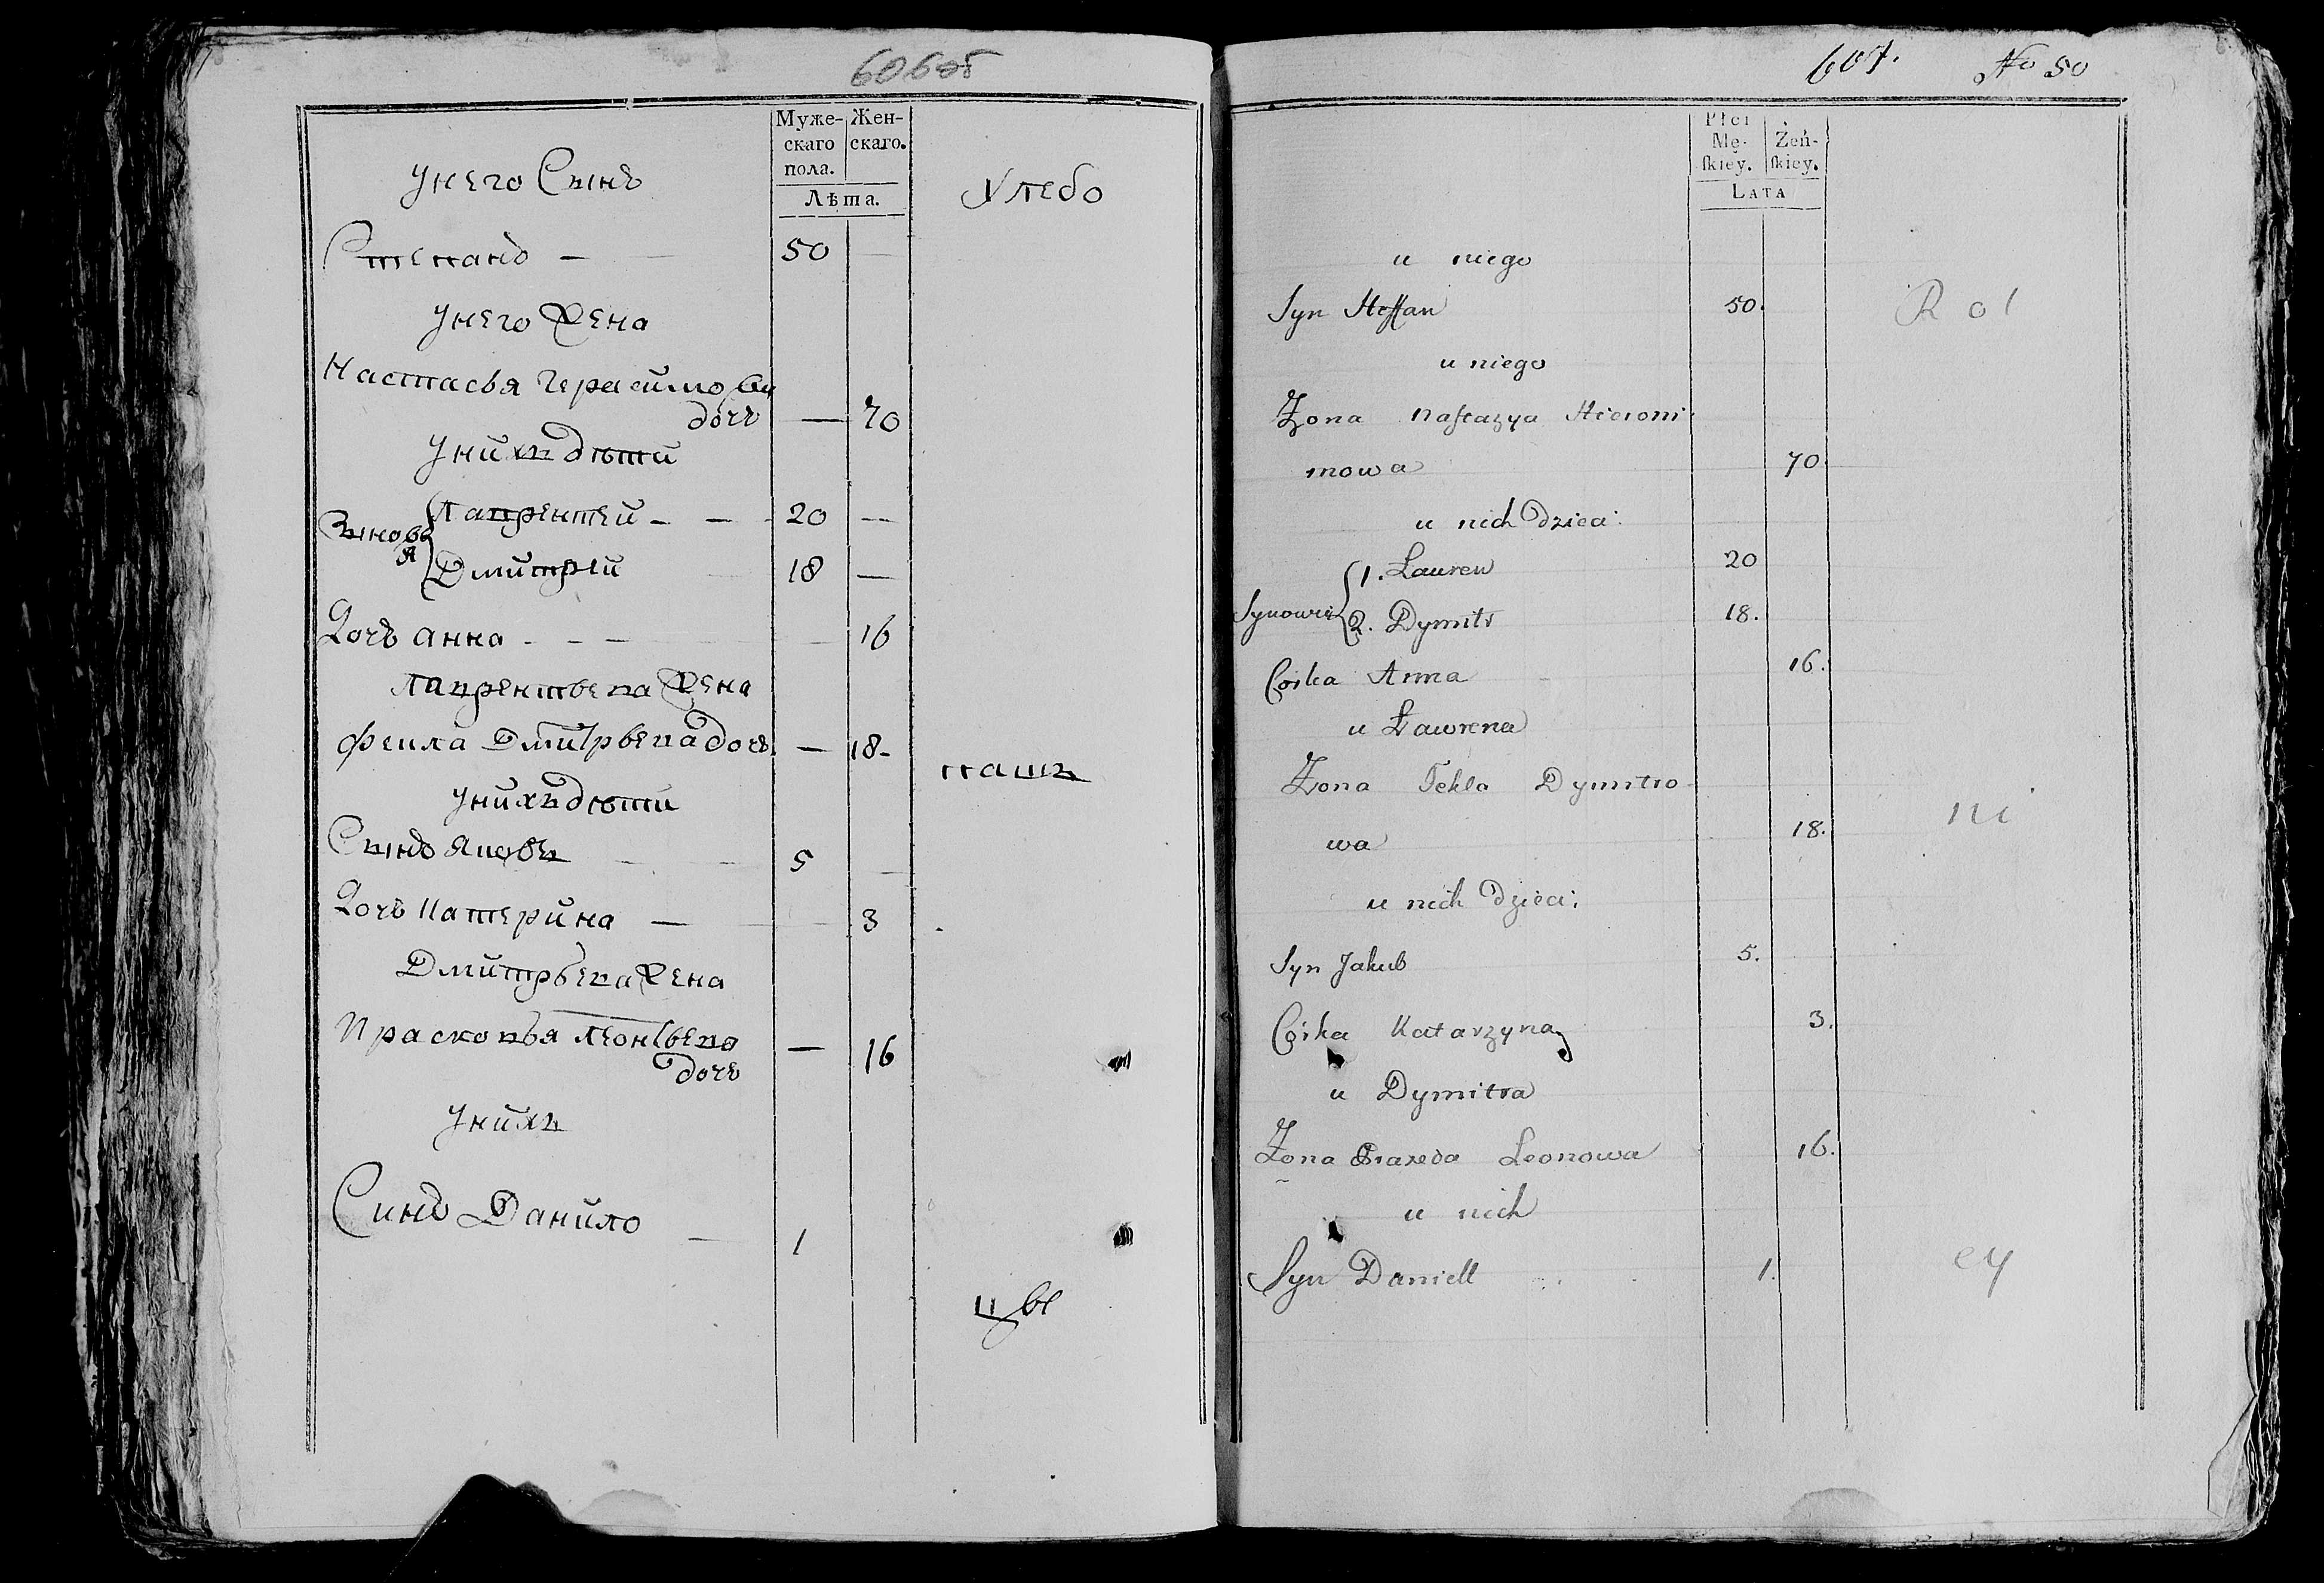 606об
Муже-
скаго
пола.
Жен-
скаго.
Лѣта.
у него Сынъ
Хлебо
Степанъ — 50 —
у него Жена
Настасья Герасимова
дочь — 70
у нихъ дѣти
Сыновь
я
Лаврентей — — 20 —
Дмитрей 18 —
Дочь анна - - - 16
Лаврентьева Жена
Фекла Дмитрьева дочь — 18-
пашъ
у нихъ дѣти
Сынъ Яковъ 5 —
Дочь Катерина — 3
Дмитрьева Жена
Прасковья Леонтьева
дочь — 16
у нихъ
Синъ Данило — 1
цы
607. No 50
Płci
Mę-
ſkiey.
Żeń-
ſkiey.
LATA
u niego
Syn Steffan 50.
Rol
u niego
Żona Nastazya Hieroni
mowa 70.
u nich Dzieci:
Synowie
1. Lauren 20
2. Dymitr 18.
Corka Anna 16.
u Ławrena
Żona Tekla Dymitro
wa 18.
ni
u nich Dzieci:
Syn Jakub 5.
Córka Katarzyna 3.
u Dymitra
Żona Praxeda Leonowa 16.
u nich
Syn Daniell 1.
cy